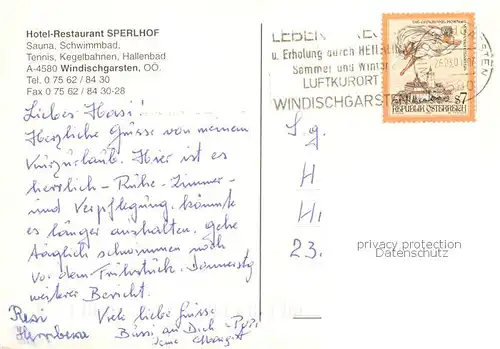 Hotel-Restaurant SPERLHOF
Sauna, Schwimmbad,
Tennis, Kegelbahnen, Hallenbad
A-4580 Windischgarsten, OÖ.
Tel. 0 75 62 / 84 30
Fax 0 75 62 / 84 30-28
u. Erholung durch
Sommer und Winter
LUFTKURORT
WINDISCHGARSTEN
s7
REPUBLIK ÖSTERREICH
Liebes Hasi!
Herzliche Grüsse von meinem
Kurzurlaub. Hier ist es
herrlich - Ruhe - Zimmer -
und Verpflegung, könnte
es länger aushalten, gehe
täglich schwimmen noch
vor dem Frühstück. Donnerstg
weiterer Bericht.
Viele liebe Grüsse
Resi
Bussi an Dich -
S. g.
H
H
23.
privacy protection
Datenschutz